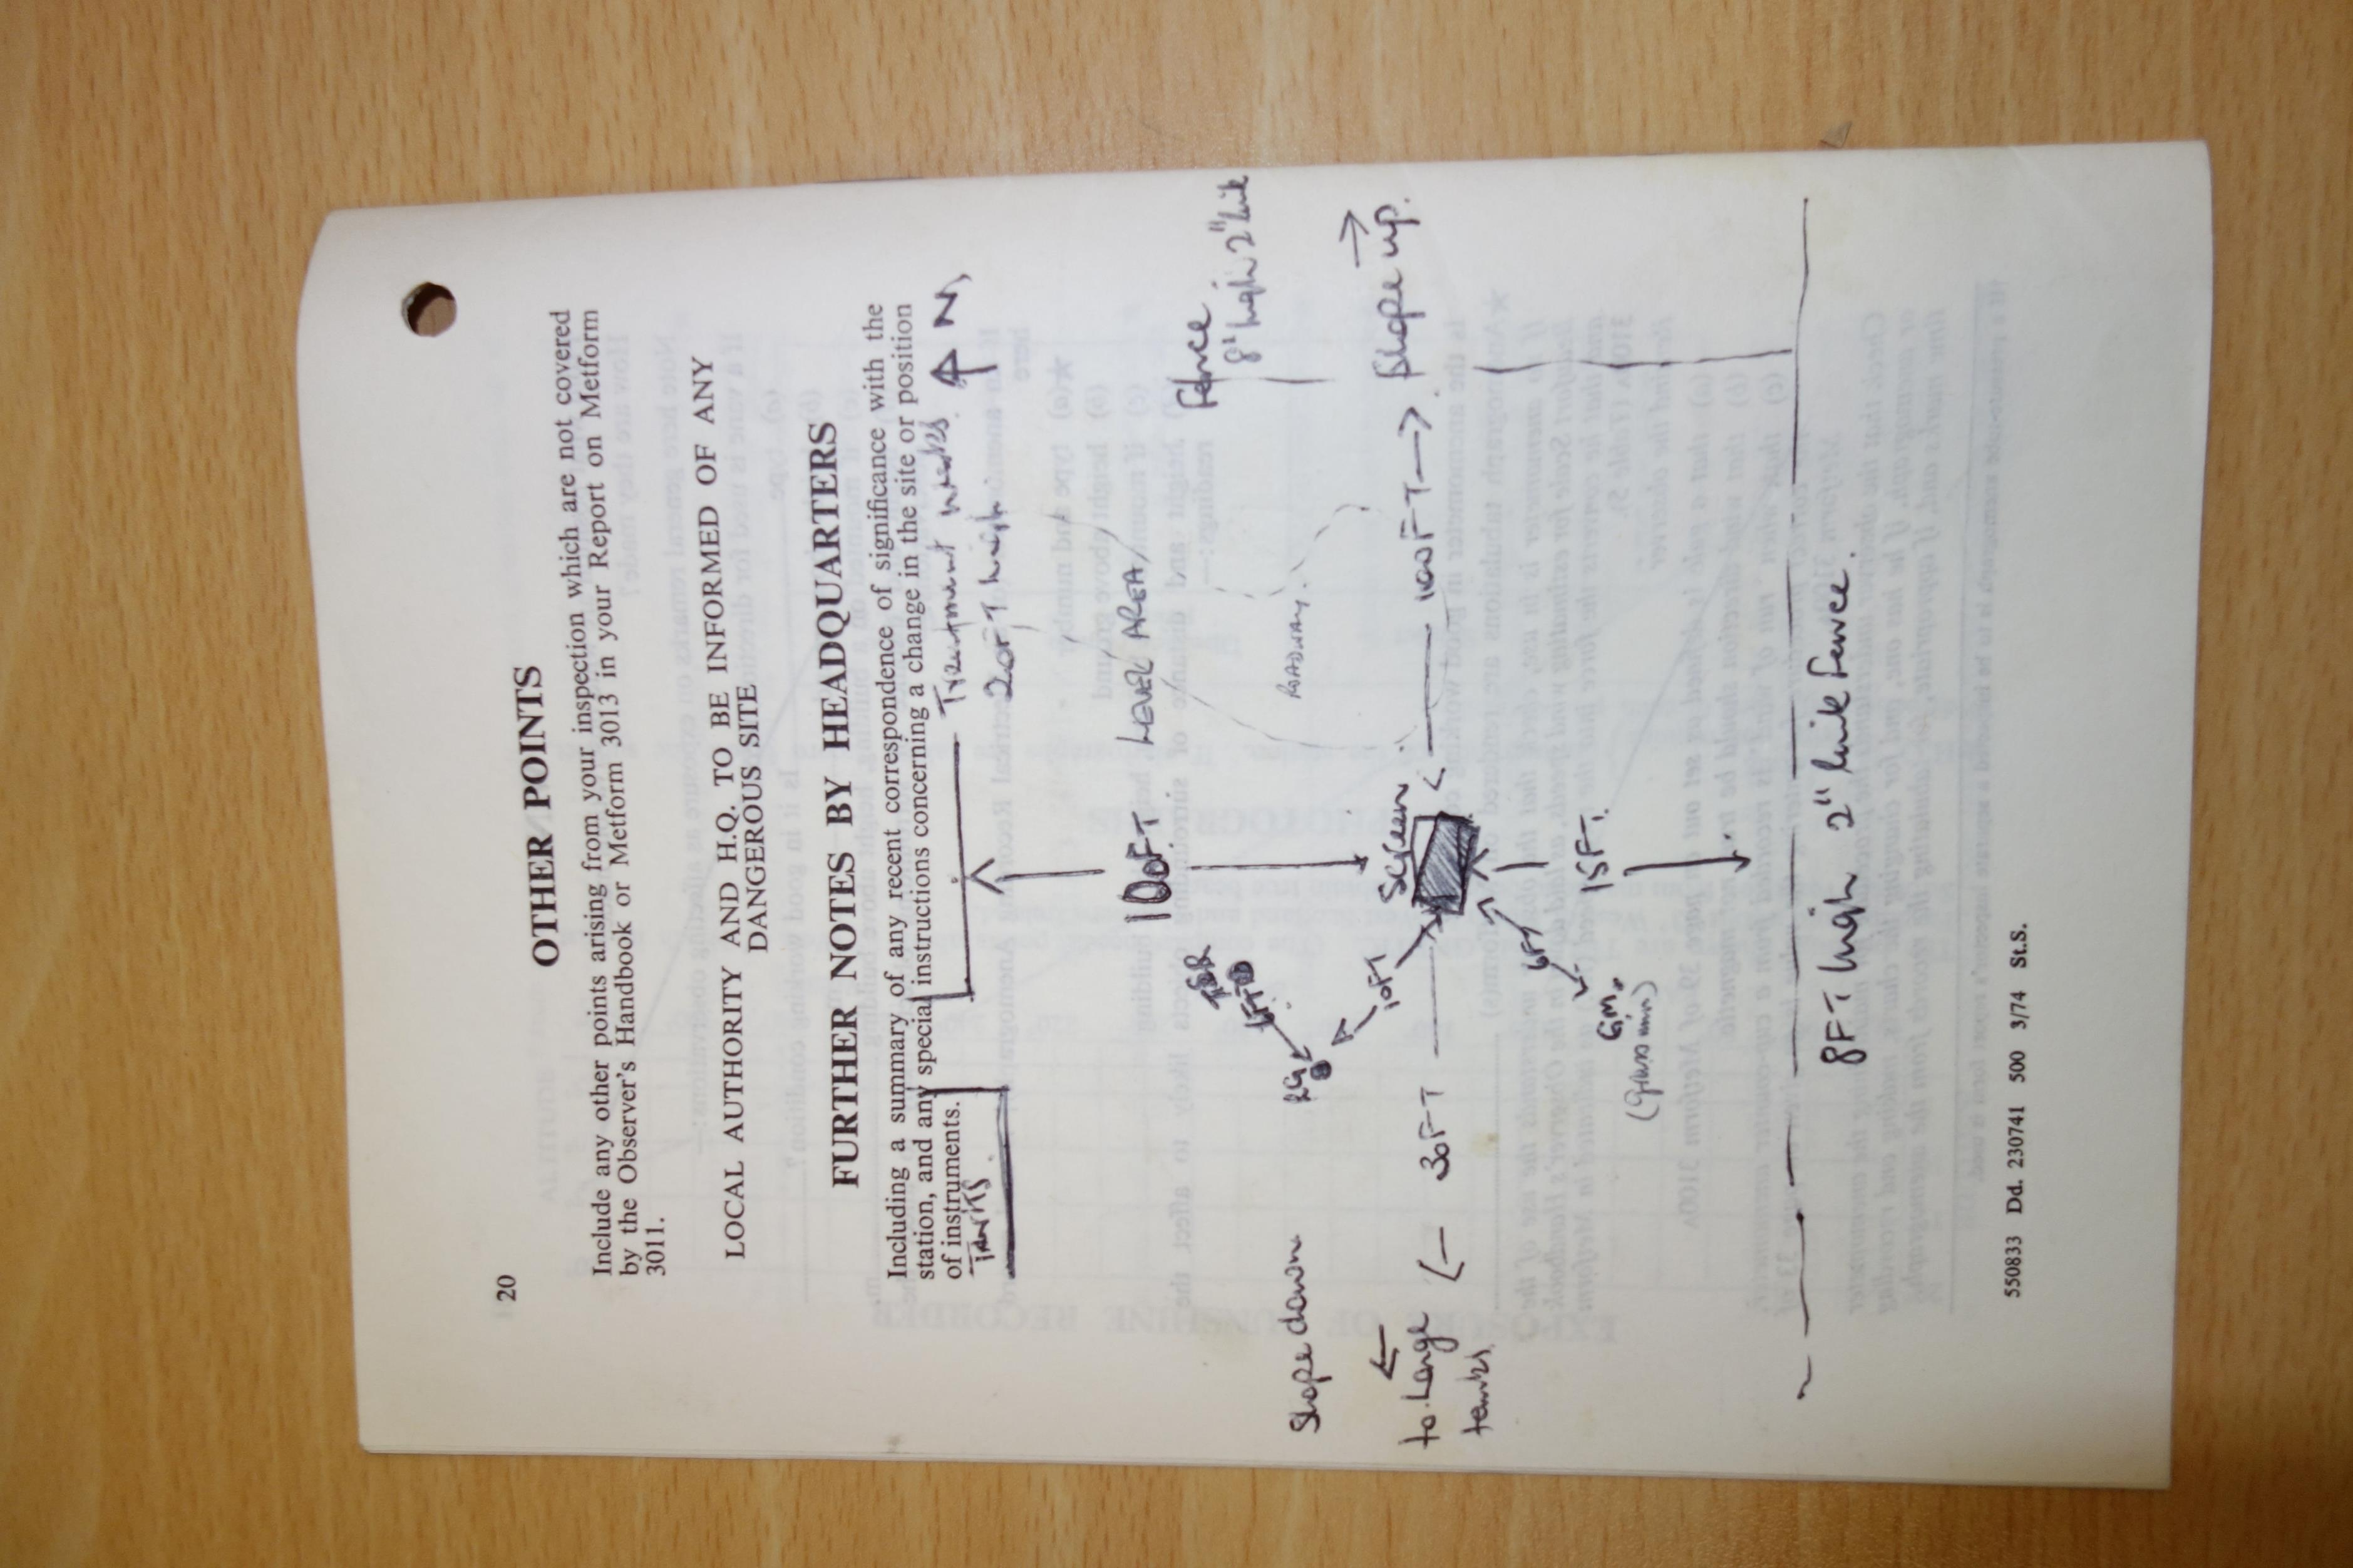 20
OTHER POINTS
Include any other points arising from your inspection which are not covered
by the Observer's Handbook or Metform 3013 in your Report on Metform
3011.
LOCAL AUTHORITY AND H.Q. TO BE INFORMED OF ANY
DANGEROUS SITE
FURTHER NOTES BY HEADQUARTERS
Including a summary of any recent correspondence of significance with the
station, and any special instructions concerning a change in the site or position
of instruments.
Tanks.
Treatment works
20FT high
N
100FT
LEVEL AREA
Fence
8' high 2" link
ROADWAY.
RG
Slope down
to Large
tanks
30FT
10FT
Screen
100FT
Slope up.
6FT
GM
(Grass min)
15FT.
8FT high 2" link fence.
550833 Dd. 230741 500 3/74 St.S.